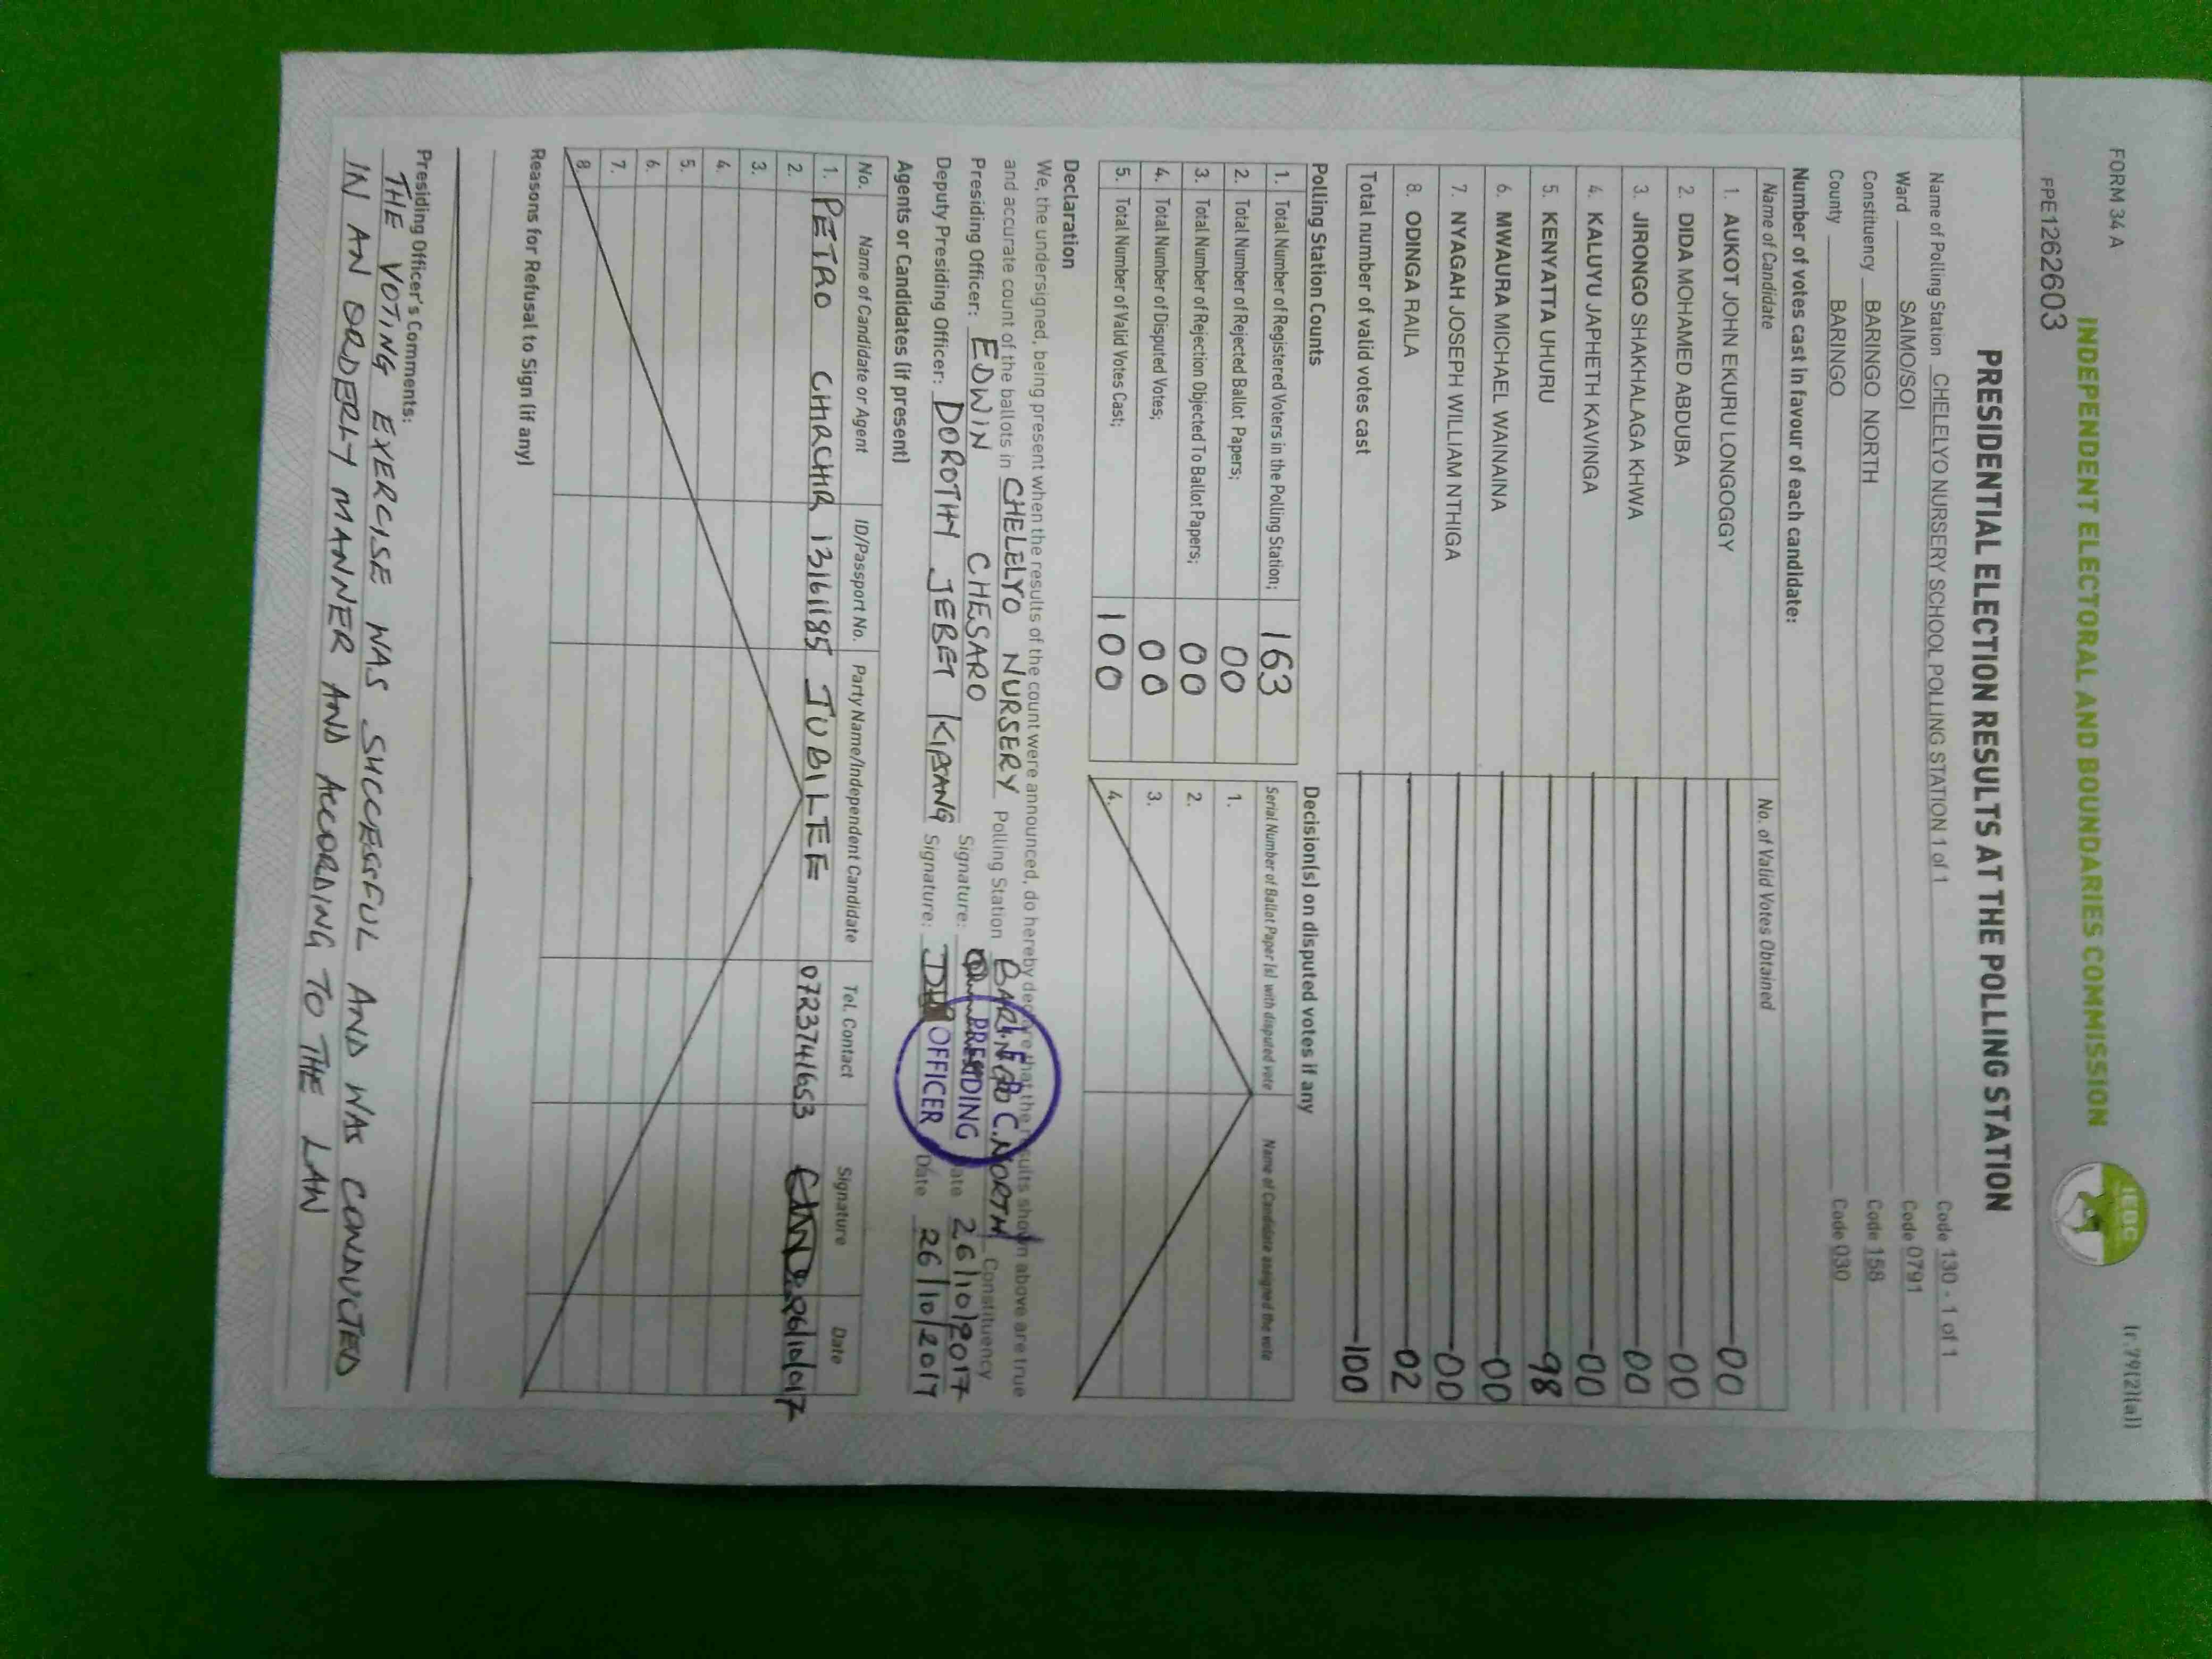 FORM 34 A
(r.79(2)(a))
INDEPENDENT ELECTORAL AND BOUNDARIES COMMISSION
IEBC
FPE126203
PRESIDENTIAL ELECTION RESULTS AT THE POLLING STATION
Name of Polling Station CHELELYO NURSERY SCHOOL POLLING STATION 1 of 1 Code 130 - 1 of 1
Ward SAIMO/SOI Code 0791
Constituency BARINGO NORTH Code 158
County BARINGO Code 030
Number of votes cast in favour of each candidate:
Name of Candidate No. of Valid Votes Obtained
1. AUKOT JOHN EKURU LONGOGGY 00
2. DIDA MOHAMED ABDUBA 00
3. JIRONGO SHAKHALAGA KHWA 00
4. KALUYU JAPHETH KAVINGA 00
5. KENYATTA UHURU 98
6. MWAURA MICHAEL WAINAINA 00
7. NYAGAH JOSEPH WILLIAM NTHIGA 00
8. ODINGA RAILA 02
Total number of valid votes cast 100
Polling Station Counts
1. Total Number of Registered Voters in the Polling Station; 163
2. Total Number of Rejected Ballot Papers; 00
3. Total Number of Rejection Objected To Ballot Papers; 00
4. Total Number of Disputed Votes; 00
5. Total Number of Valid Votes Cast; 100
Decision(s) on disputed votes if any
Serial Number of Ballot Paper (s) with disputed vote Name of Candidate assigned the vote
1.
2.
3.
4.
Declaration
We, the undersigned, being present when the results of the count were announced, do hereby declare that the results shown above are true
and accurate count of the ballots in CHELELYO NURSERY Polling Station BARINGO NORTH Constituency
Presiding Officer: EDWIN CHESARO Signature: Date 26/10/2017
Deputy Presiding Officer: DOROTHY JEBET KIPSANG Signature: Date 26/10/2017
PRESIDING
OFFICER
Agents or Candidates (if present)
No. Name of Candidate or Agent ID/Passport No. Party Name/Independent Candidate Tel. Contact Signature Date
1. PETRO CHIRCHIR 13161185 JUBILEE 0723741653
2.
3.
4.
5.
6.
7.
8.
Reasons for Refusal to Sign (if any)
Presiding Officer's Comments:
THE VOTING EXERCISE WAS SUCCESSFUL AND WAS CONDUCTED
IN AN ORDERLY MANNER AND ACCORDING TO THE LAW